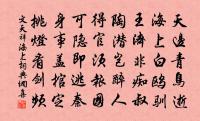 天邊青鳥逝
海上白鷗馴
王濟非痴叔
陶潛豈醉人
得官須報國
可隱即逃秦
身事蓋棺定
挑燈看劍頻
文天祥海上詞典網書